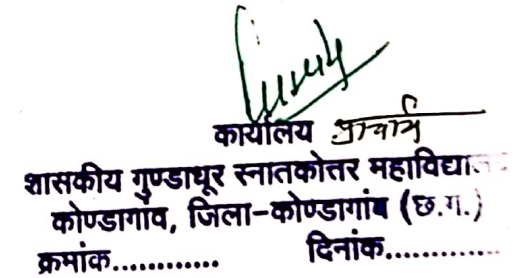 कार्यालय प्राचार्य
शासकीय गुण्डाधूर स्नातकोत्तर महाविद्या
कोण्डागांव, जिला-कोण्डागांव (छ.ग.)
क्रमांक............ दिनांक............